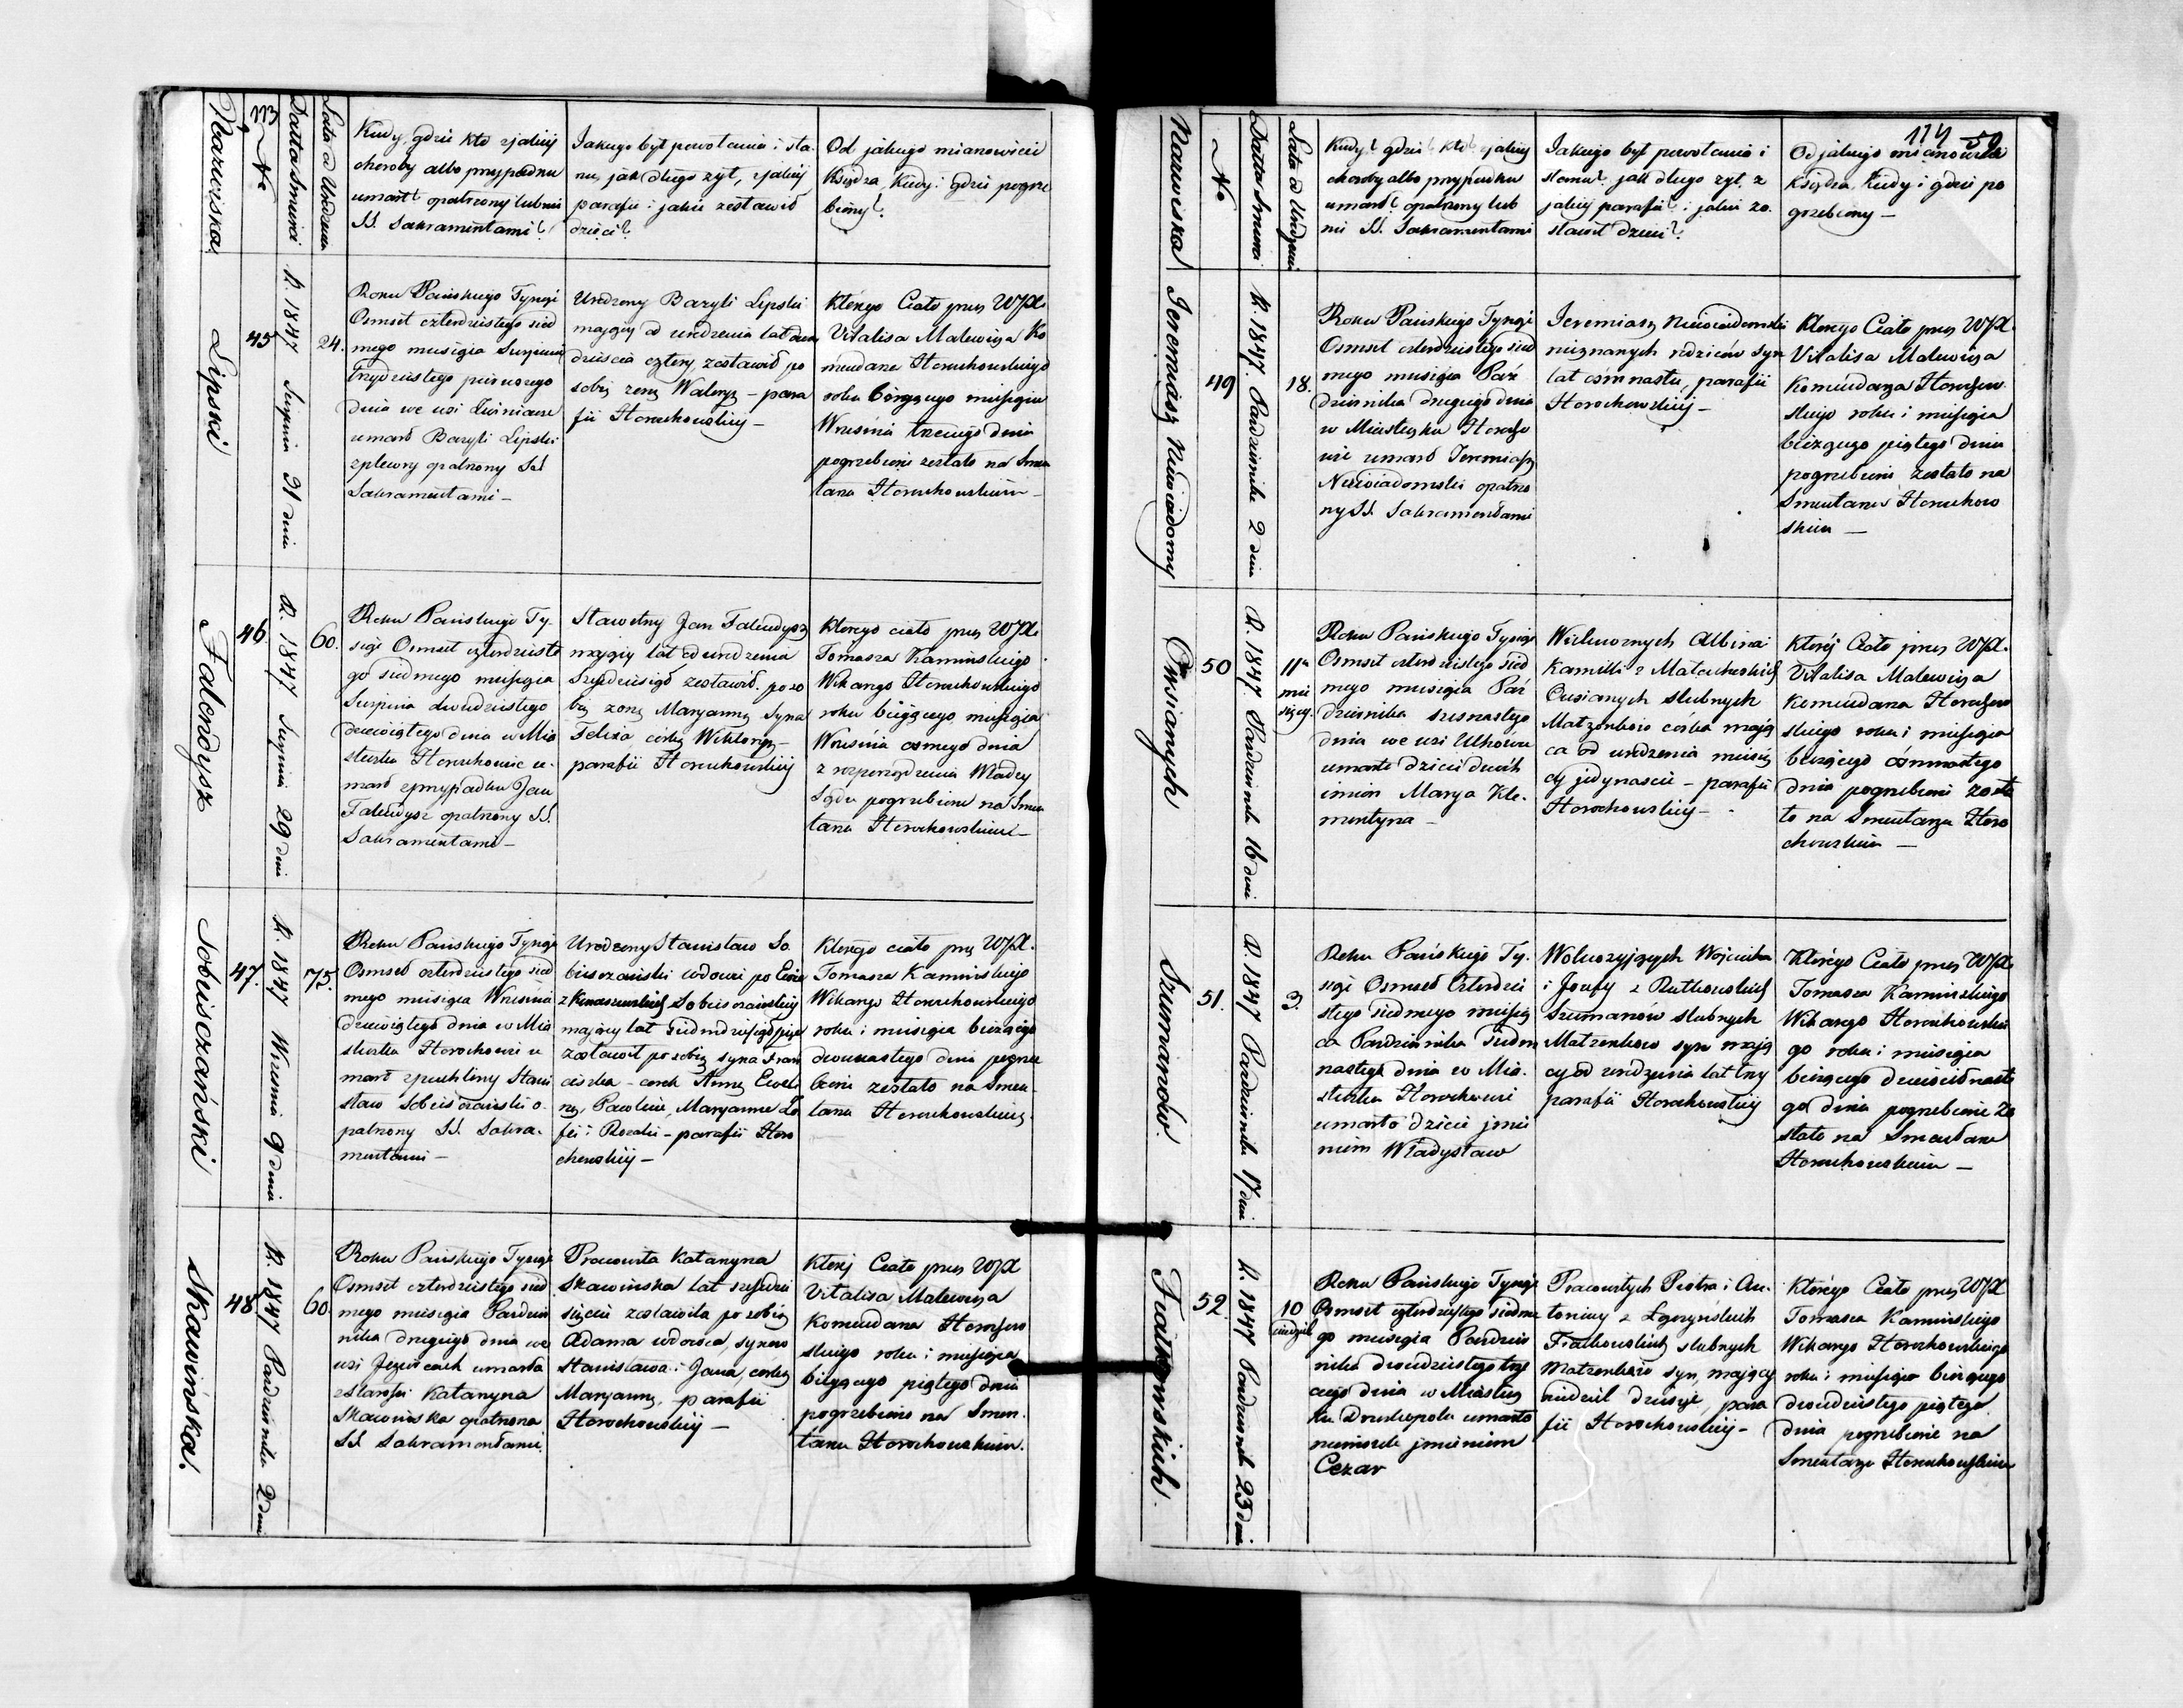 113
Nazwiska
No
Datta Smierci
Lata od Urodzenia
Kiedy, gdzie kto z jakiej
choroby albo przypadku
umarł? opatrzony lub nie
SS. Sakramentami?
Jakiego był powołania i sta-
nu, jak długo żył, z jakiej
parafii i jakie zostawił
dzieci?
Od jakiego mianowicie
Księdza, Kiedy i gdzie pogrze
biony?
Lipski
45
R. 1847 Sierpnia 31 dnia
24.
Roku Pańskiego Tysiąc
Osmset czterdziestego siod
mego miesiąca Sierpnia
trzydziestego pierwszego
dnia we wsi
umarł Bazyli Lipski
z plewry opatrzony SS.
Sakramentami —
Urodzony Bazyli Lipski
mający od urodzenia lat dwa
dzieścia cztery, zostawił po
sobie żonę Waleryą — para
fii Horochowskiej —
Którego Ciało przez WJX
Vitalisa Malewicza Ko
mendarza Horochowskiego
roku bieżącego miesiąca
Września trzeciego dnia
pogrzebione zostało na Smen
tarzu Horochowskim —
Falendysz
46
R. 1847 Sierpnia 29 dnia
60.
Roku Pańskiego Ty-
siąc Osmset czterdzieste
go siodmego miesiąca
Sierpnia dwudziestego
dziewiątego dnia w Mia
steczku Horochowie u-
marł z przypadku Jan
Falendysz opatrzony SS.
Sakramentami —
Sławetny Jan Falendysz
mający lat od urodzenia
Sześdziesiąt zostawił po so
bie żonę Maryannę Syna
Felixa córkę Wiktoryą —
parafii Horochowskiej
Którego ciało przez WJX
Tomasza Kaminskiego
Wikarego Horochowskiego
roku bieżącego miesiąca
Września osmego dnia
z rozporządzenia Władzy
Sądu pogrzebione na Smen
tarzu Horochowskim —
Sobiesczański
47.
R. 1847 Wrzesnia 9 dnia
75.
Roku Pańskiego Tysiąc
Osmset czterdziestego siod
mego miesiąca Września
dziewiątego dnia w Mia
steczku Horochowie u
marł z puchliny Stani
sław Sobiesczański o-
patrzony SS. Sakra-
mentami —
Urodzony Stanisław So
biesczański wdowiec po Ewie
z Sobiesczańskiej
mający lat siedmdziesiąt pięć
zostawił po sobie syna Fran
ciszka — corek Annę Eweli
nę, Paulinę, Maryannę Zo
fię i Rozalię — parafii Horo
chowskiej —
Którego ciało przez WJX.
Tomasza Kaminskiego
Wikarego Horochowskiego
roku i miesiąca bieżącego
dwunastego dnia pogrze
bione zostało na Smen-
tarzu Horochowskim.
Skawińska.
48
R. 1847 Pazdziernika 2 dnia
60
Roku Pańskiego Tysiąc
Osmset czterdziestego siod
mego miesiąca Pazdzier
nika drugiego dnia we
wsi Jeziorcach umarła
z starości Katarzyna
Skawińska opatrzona
SS Sakramentami.
Pracowita Katarzyna
Skawińska lat sześdzie
sięciu zostawiła po sobie
Adama wdowca, synów
Stanisława i Jana, córkę
Maryannę, parafii
Horochowskiej —
Której Ciało przez WJX
Vitalisa Malewicza
Komendarza Horochow
skiego roku i miesiąca
bieżącego piątego dnia
pogrzebione na Smen-
tarzu Horochowskim.
114 59
Nazwiska
No
Datta Smierci
Lata od Urodzenia
Kiedy? gdzie kto z jakiej
choroby albo przypadku
umarł? opatrzony lub
nie SS. Sakramentami
Jakiego był powołania i
stanu? jak długo żył, z
jakiej parafii? i jakie zo-
stawił dzieci?
Od jakiego mianowicie
Księdza, Kiedy i gdzie po
grzebiony —
Jeremiasz Niewiadomy
49
R. 1847 Pazdziernika 2 dnia
18.
Roku Pańskiego Tysiąc
Osmset czterdziestego siod
mego miesiąca Paź
dziernika drugiego dnia
w Miasteczku Horocho
wie umarł Jeremiasz
Niewiadomski opatrzo
ny SS. Sakramentami
Jeremiasz Niewiadomski
nieznanych rodziców syn
lat ośmnastu, parafii
Horochowskiej —
Którego Ciało przez WJX.
Vitalisa Malewicza
Komendarza Horochow
skiego roku i miesiąca
bieżącego piątego dnia
pogrzebione zostało na
Smentarzu Horochow
skim —
Ousianych
50
R. 1847. Pazdziernika 16 dnia
11cie
mie
sięcy.
Roku Pańskiego Tysiąc
Osmset czterdziestego siod
mego miesiąca Paź
dziernika szesnastego
dnia we wsi Uhrynowie
umarło dziecie dwóch
imion Marya Kle-
mentyna —
Wielmożnych Albina i
Kamilli z
Ousianych slubnych
Małżonków córka mają
ca od urodzenia miesię
cy jedynaście — parafii
Horochowskiej —
Której Ciało przez WJX.
Vitalisa Malewicza
Komendarza Horochow
skiego roku i miesiąca
bieżącego ośmnastego
dnia pogrzebione zosta
ło na Smentarzu Horo
chowskim —
Szumanów
51.
R. 1847 Pazdziernika 17 dnia
3.
Roku Pańskiego Ty-
siąc Osmset Czterdzie
stego siodmego miesią
ca Pazdziernika siedm
nastego dnia w Mia-
steczku Horochowie
umarło dziecie imie
niem Władysław
Wolnożyjących Wojciecha
i Jozefy z Rutkowskich
Szumanów slubnych
Małżonków syn mają
cy od urodzenia lat trzy
parafii Horochowskiej
Którego Ciało przez WJX
Tomasza Kaminskiego
Wikarego Horochowskie
go roku i miesiąca
bieżącego dziewietnaste
go dnia pogrzebione zo
stało na Smentarzu
Horochowskim —
Fiałkowskich.
52
R. 1847 Pazdziernika 23 dnia
10
niedziel
Roku Pańskiego Tysiąc
Osmset czterdziestego siodme
go miesiąca Pazdzier
nika dwudziestego trze
ciego dnia w Miastecz
ku Druszkopolu umarło
niemowle imieniem
Cezar
Pracowitych Piotra i An-
toniny z
Fiałkowskich slubnych
Małżonków syn, mający
niedziel dziesięć, para
fii Horochowskiej —
Którego Ciało przez WJX
Tomasza Kaminskiego
Wikarego Horochowskiego
roku i miesiąca bieżącego
dwudziestego piątego
dnia pogrzebione na
Smentarzu Horochowskim